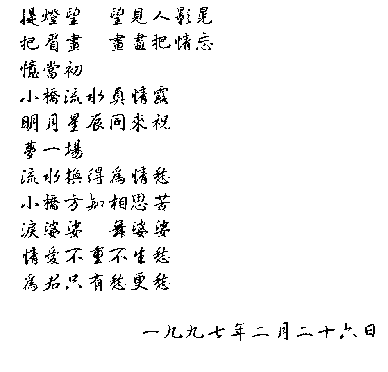 提燈望 望見人影晃
把眉畫 畫盡把情忘
憶當初
小橋流水真情露
明月星辰同來祝
夢一場
流水換得為情愁
小橋方知相思苦
淚婆娑 舞婆娑
情愛不重不生愁
為君只有愁更愁
一九九七年二月二十六日